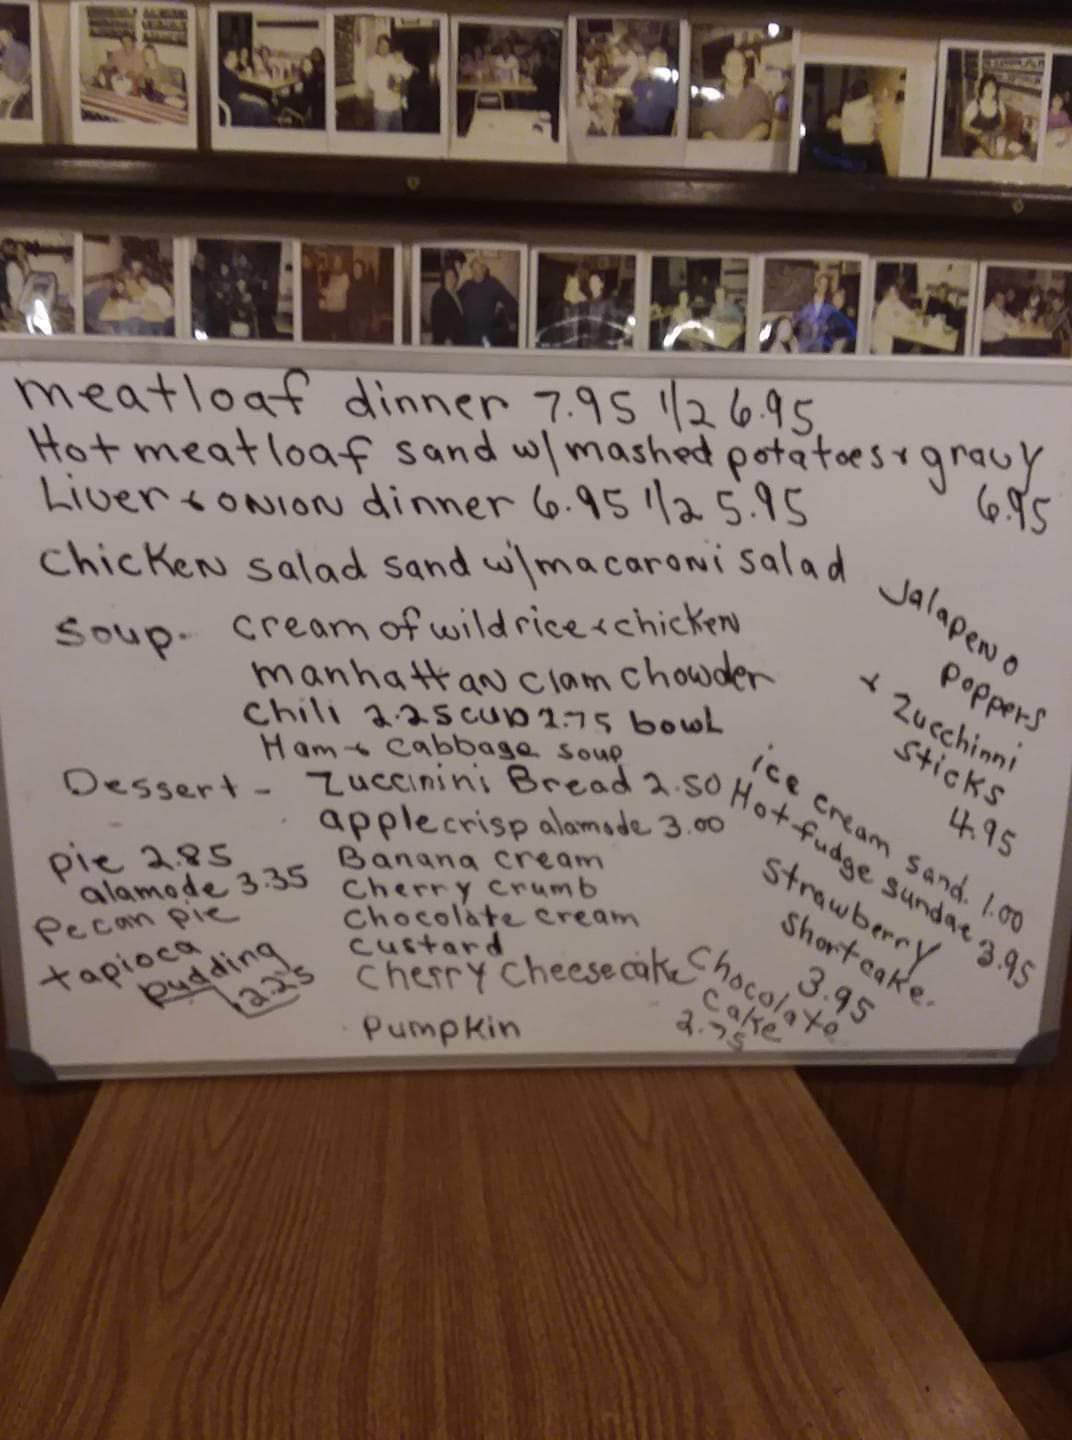 meatloaf dinner 7.95 1/2 6.95
Hot meatloaf sand w/ mashed potatoes & gravy
6.95
Liver & onion dinner 6.95 1/2 5.95
Chicken salad sand w/ macaroni salad
Soup - cream of wild rice & chicken
manhattan clam chowder
Chili 2.25 cup 2.75 bowl
Ham & cabbage soup
Jalapeno
poppers
& Zucchinni
sticks
4.95
Dessert - Zuccinini Bread 2.50
apple crisp alamode 3.00
pie 2.85
alamode 3.35
Pecan pie
tapioca
pudding
2.25
Banana cream
Cherry crumb
Chocolate cream
custard
Cherry Cheesecake
Pumpkin
ice cream sand. 1.00
Hot fudge sundae 3.95
Strawberry
Shortcake.
3.95
Chocolate
cake
2.75